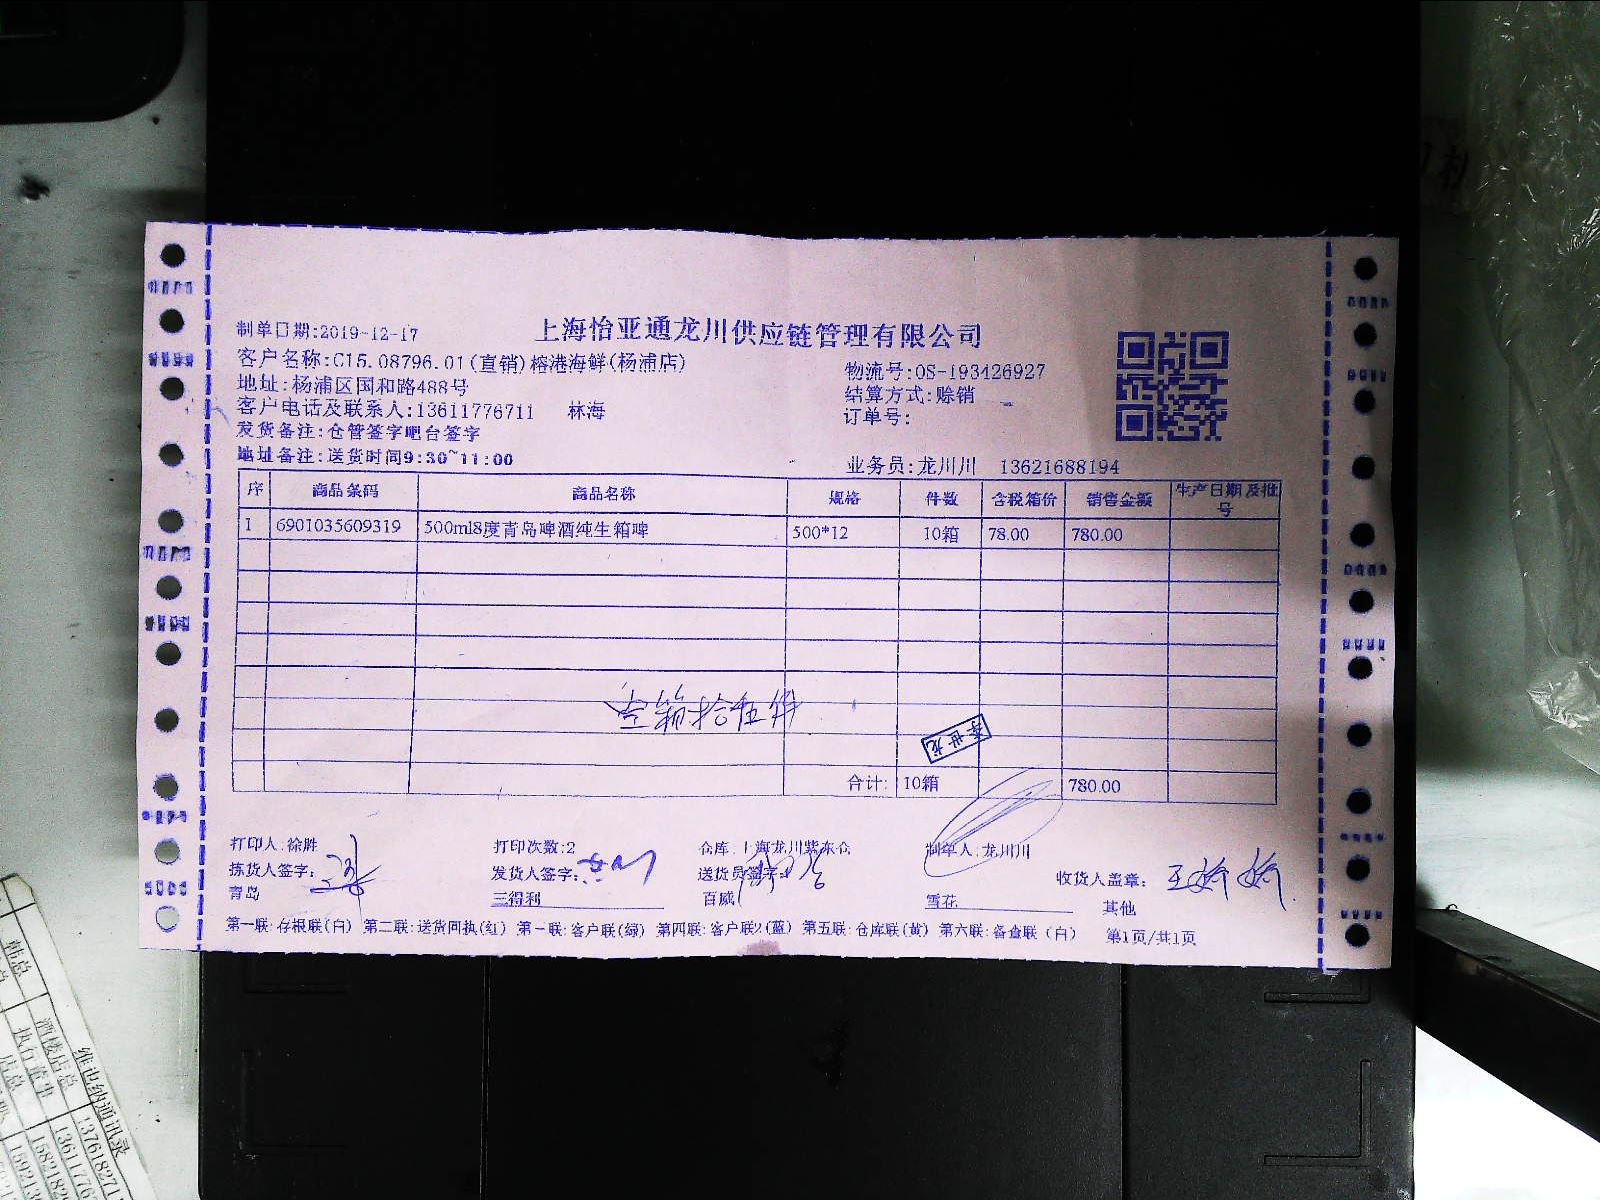 上海怡亚通龙川供应链管理有限公司
制单日期:2019-12-17
客户名称:C15.08796.01(直销)榕港海鲜(杨浦店)
物流号:OS-193426927
地址:杨浦区国和路488号
结算方式:赊销
客户电话及联系人:13611776711 林海
订单号:
发货备注:仓管签字吧台签字
地址备注:送货时间9:30~11:00
业务员:龙川川 13621688194
序 商品条码 商品名称 规格 件数 含税箱价 销售金额 生产日期及批号
1 6901035609319 500ml8度青岛啤酒纯生箱啤 500*12 10箱 78.00 780.00
李世龙
合计: 10箱 780.00
打印人:徐胜 打印次数:2 仓库:上海龙川紫东仓 制单人:龙川川
拣货人签字: 发货人签字: 送货员签字: 收货人盖章:
青岛 三得利 百威 雪花 其他
第一联:存根联(白) 第二联:送货回执(红) 第一联:客户联(绿) 第四联:客户联2(蓝) 第五联:仓库联(黄) 第六联:备查联(白) 第1页/共1页
维也纳通讯录
酒楼店总
执行董事
韩总